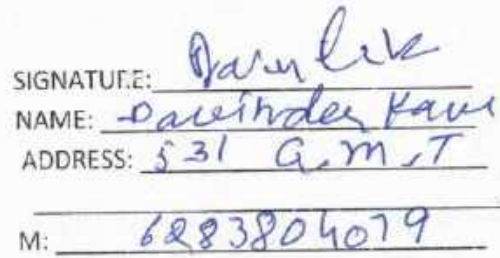 SIGNATURE:
NAME: Davinder Kaur
ADDRESS: 531 G.M.T
M: 6283804079